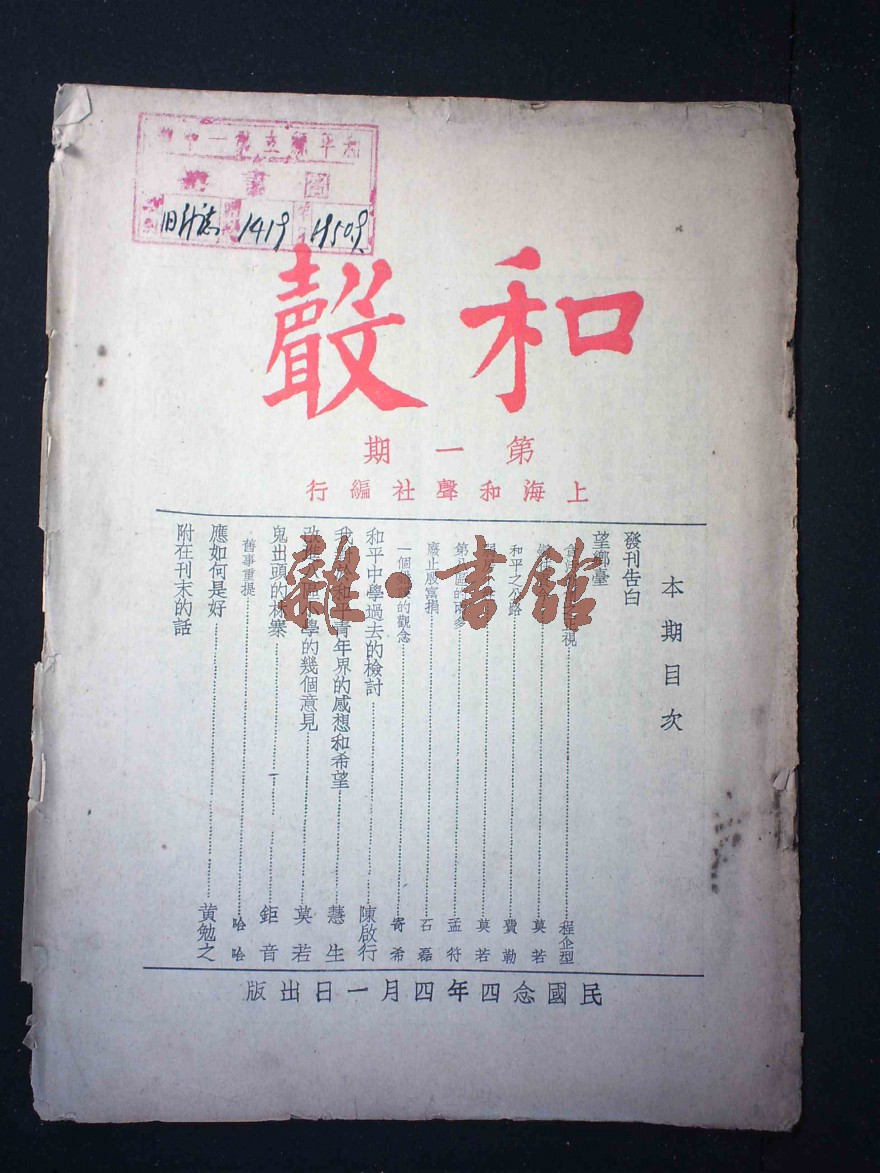 和平縣立第一中學
圖書
旧刊志 1419
和聲
第一期
上海和聲社編行
本期目次
發刊告白
望鄉臺
程企型
莫若
和平之公路 費勒
莫若
第 區的 孟符
廢止殷富捐 石磊
一個 的觀念 寄希
和平中學過去的檢討 陳啟行
我對於和平青年界的感想和希望 慧生
改進 學的幾個意見 莫若
鬼出頭的林寨 鉅音
舊事重提 哈哈
應如何是好 黃勉之
附在刊末的話
民國念四年四月一日出版
雜·書館